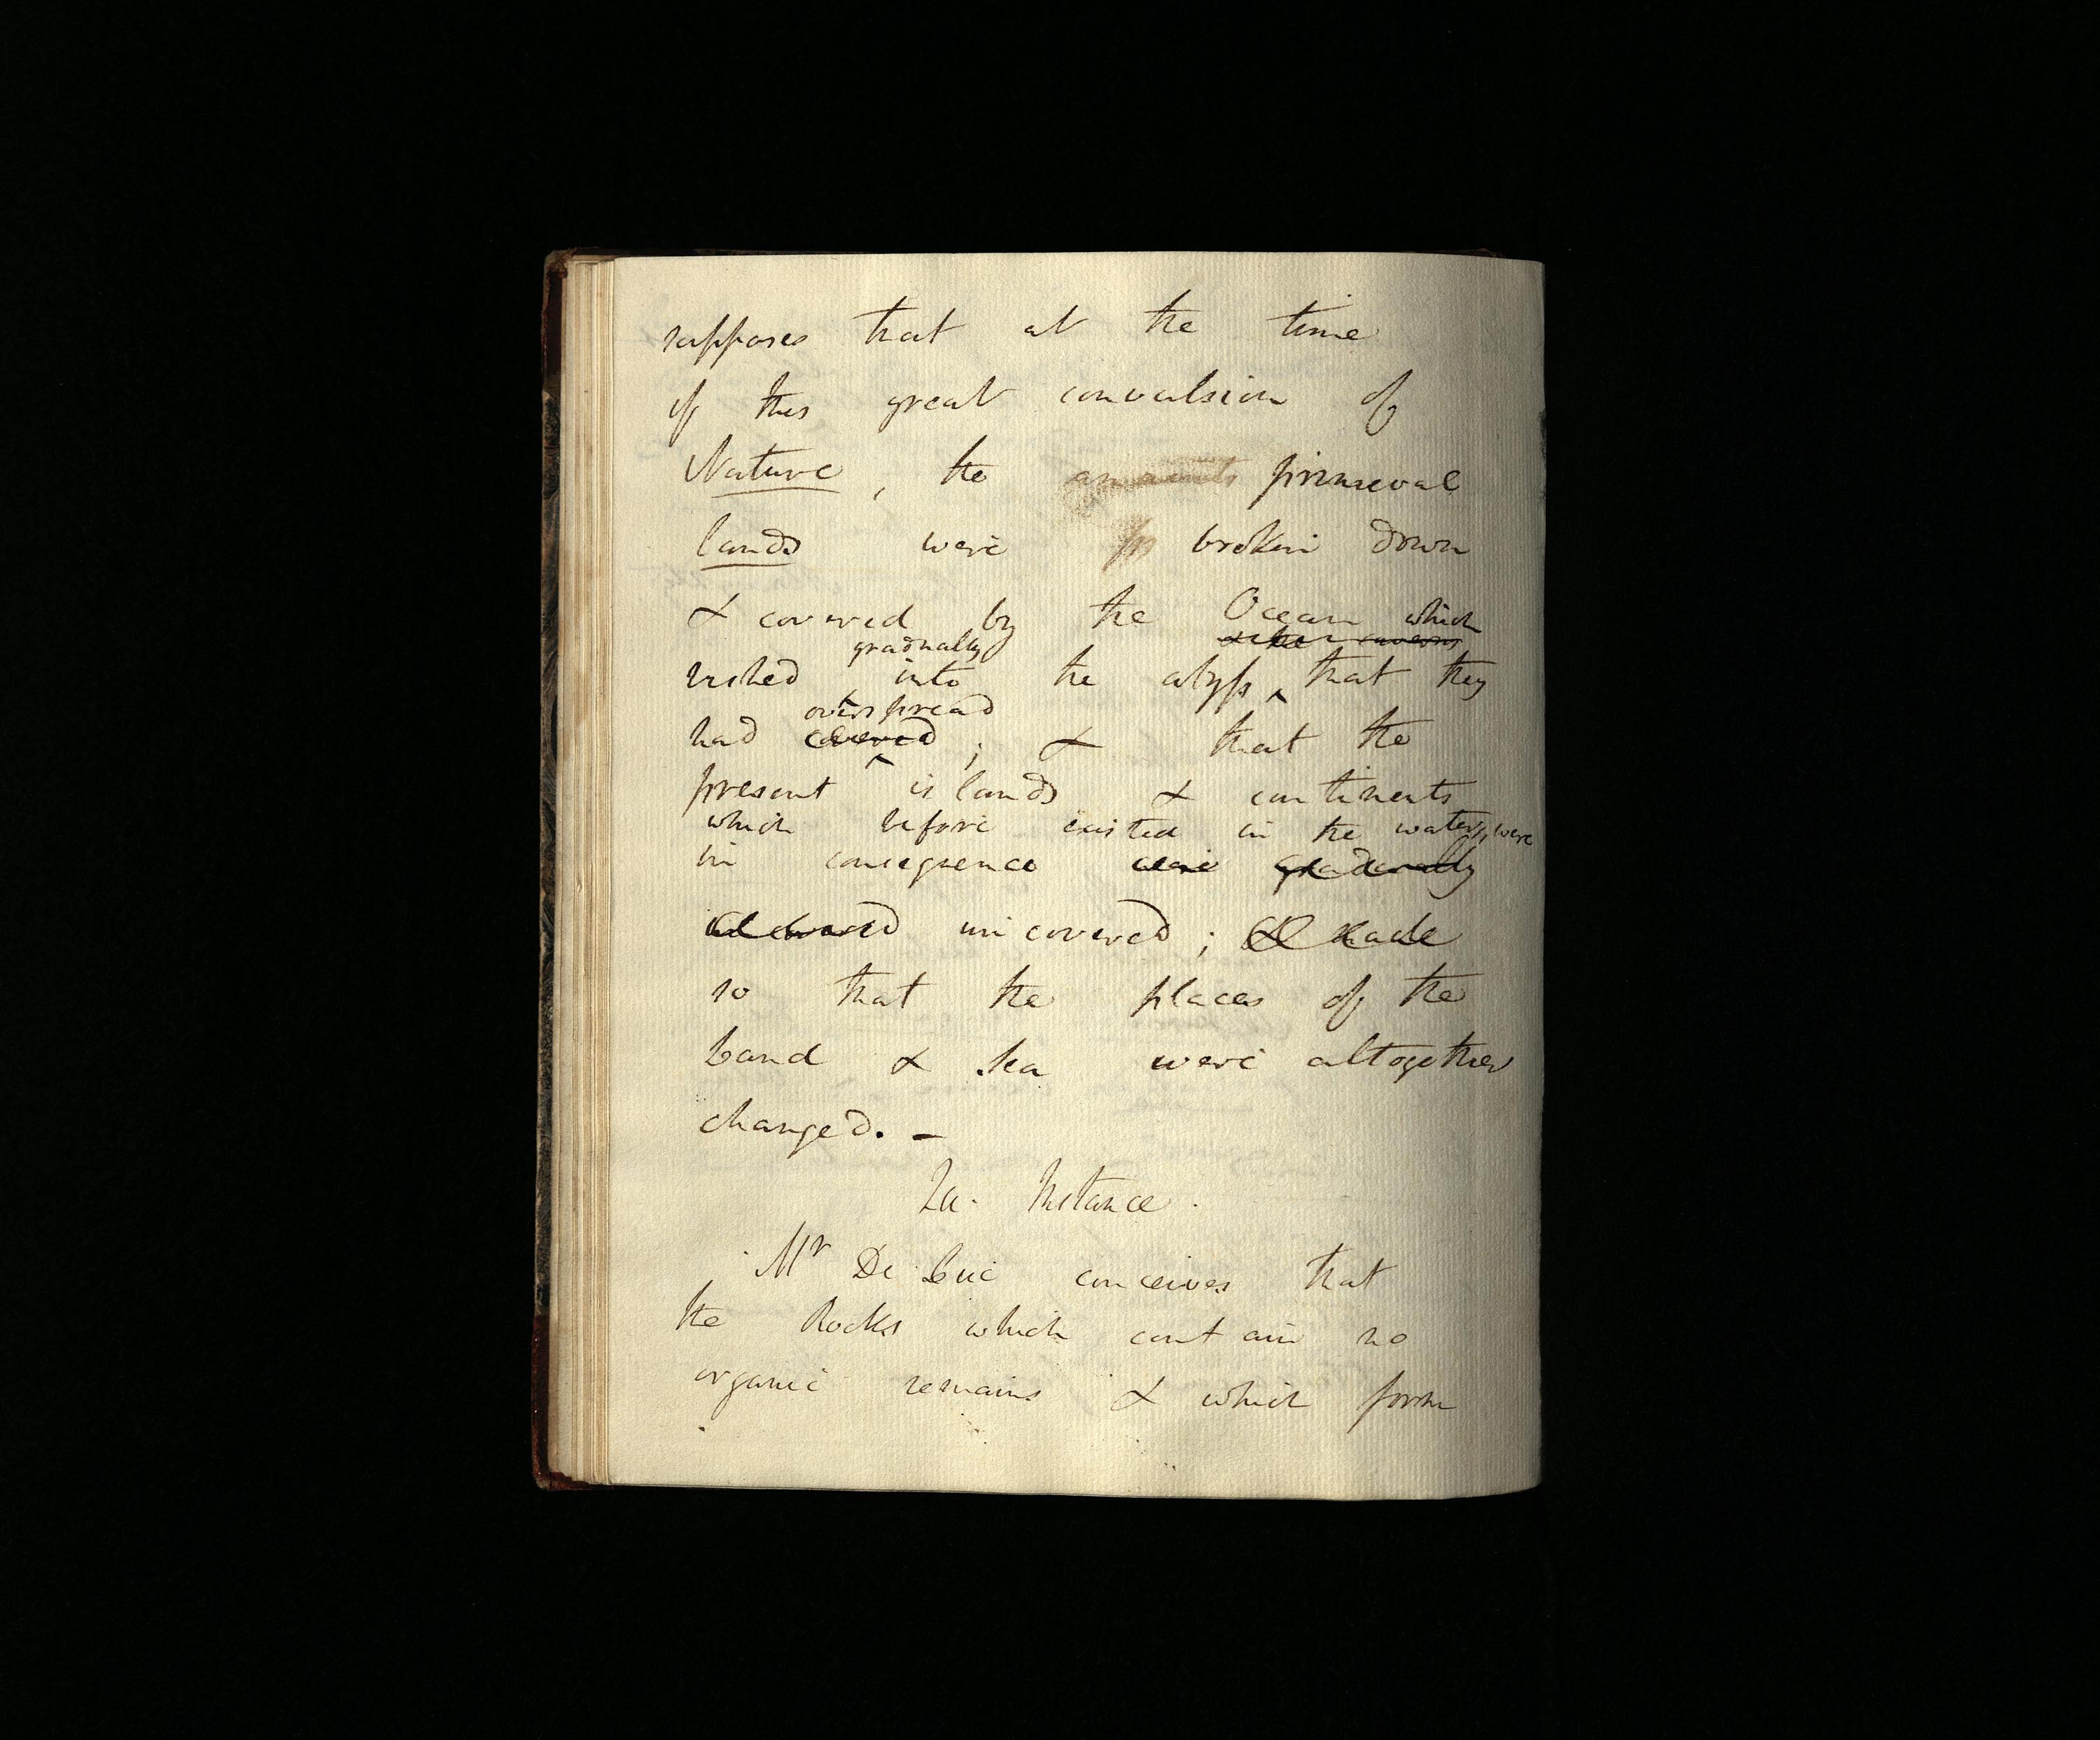 supposes that at the time
of this great convulsion of
Nature, the primaeval
lands were broken down
& covered by the Ocean which
gradually
rushed into the abyss that they
overspread
had covered ; & that the
present islands & continents
which before existed in the waters, were
in consequence were gradually
uncovered ; & made
so that the places of the
Land & Sea were altogether
changed. –
In. Instance.
Mr De Luc conceives that
the Rocks which contain no
organic remains & which form